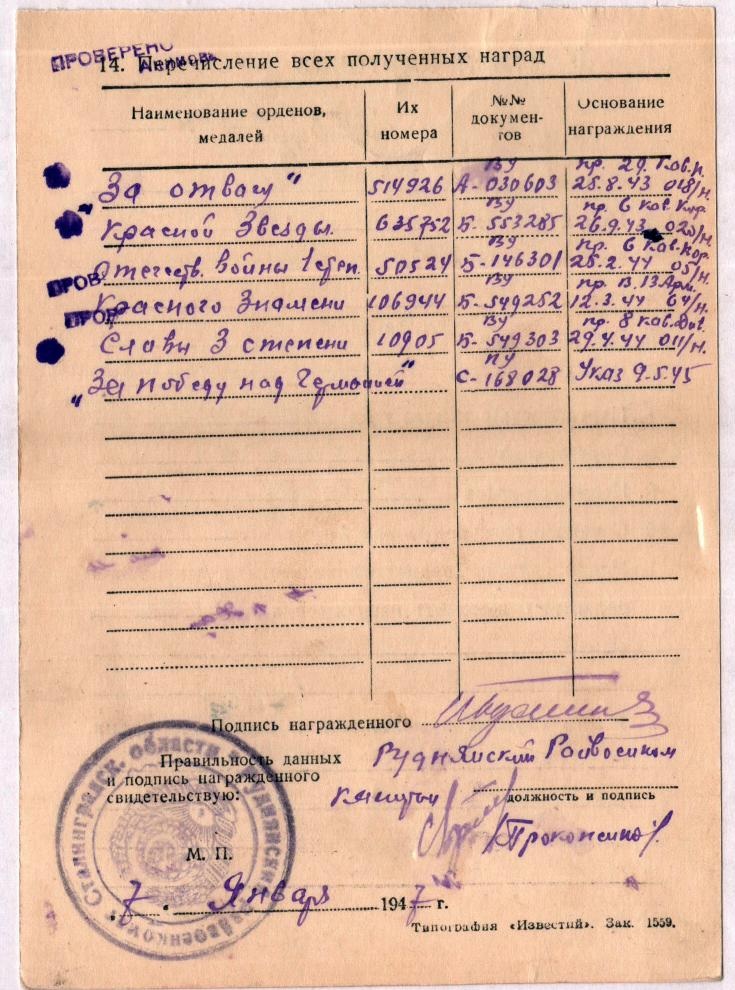 ПРОВЕРЕНО
14. Перечисление всех полученных наград
Наименование орденов, медалей
Их номера
№№ документов
Основание награждения
„За отвагу" 514926 ВУ А-030603 пр. 29. Гв.к.п. 25.8.43 018/н.
Красной Звезды 635752 ВУ Б-553285 пр. 6 кав. кор. 26.9.43 020/н.
ПРОВ.
Отечеств. войны 1 степ. 50524 ВУ Б-146301 пр. 6 Кав. Кор. 25.2.44 05/н.
ПРОВ.
Красного Знамени 106944 ВУ Б-549252 пр. В. 13 Арм. 12.3.44 64/н.
Славы 3 степени 10905 ВУ Б-549303 пр. 8 кав. див. 29.4.44 011/н.
„За победу над Германией" ПУ С-168028 Указ 9.5.45
Подпись награжденного
Правильность данных
и подпись награжденного
свидетельствую:
Руднянский Райвоенком
должность и подпись
М. П.
„7" Января 1947 г.
Типография «Известий». Зак. 1559.